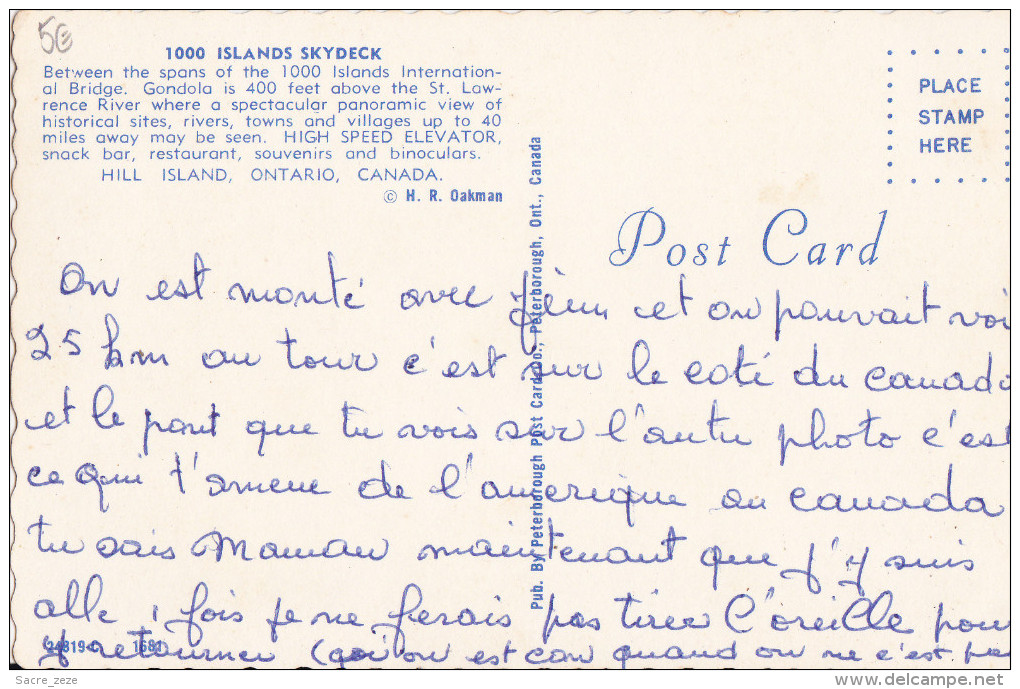 5€
1000 ISLANDS SKYDECK
Between the spans of the 1000 Islands Internation-
al Bridge. Gondola is 400 feet above the St. Law-
rence River where a spectacular panoramic view of
historical sites, rivers, towns and villages up to 40
miles away may be seen. HIGH SPEED ELEVATOR,
snack bar, restaurant, souvenirs and binoculars.
HILL ISLAND, ONTARIO, CANADA.
© H. R. Oakman
Pub. By Peterborough Post Card Co., Peterborough, Ont., Canada
PLACE
STAMP
HERE
Post Card
On est monté avec et on pouvait voi
25 km au tour c'est sur le coté du canada
et le pont que tu vois sur l'autre photo c'est
ce qui t'amene de l'amerique au canada
tu sais Maman maintenant que j'y suis
alle, fois je ne ferais pas tirée l'oreille pour
y retourner (qoi on est con quand on ne c'est pas
Sacre_zeze
delcampe.net